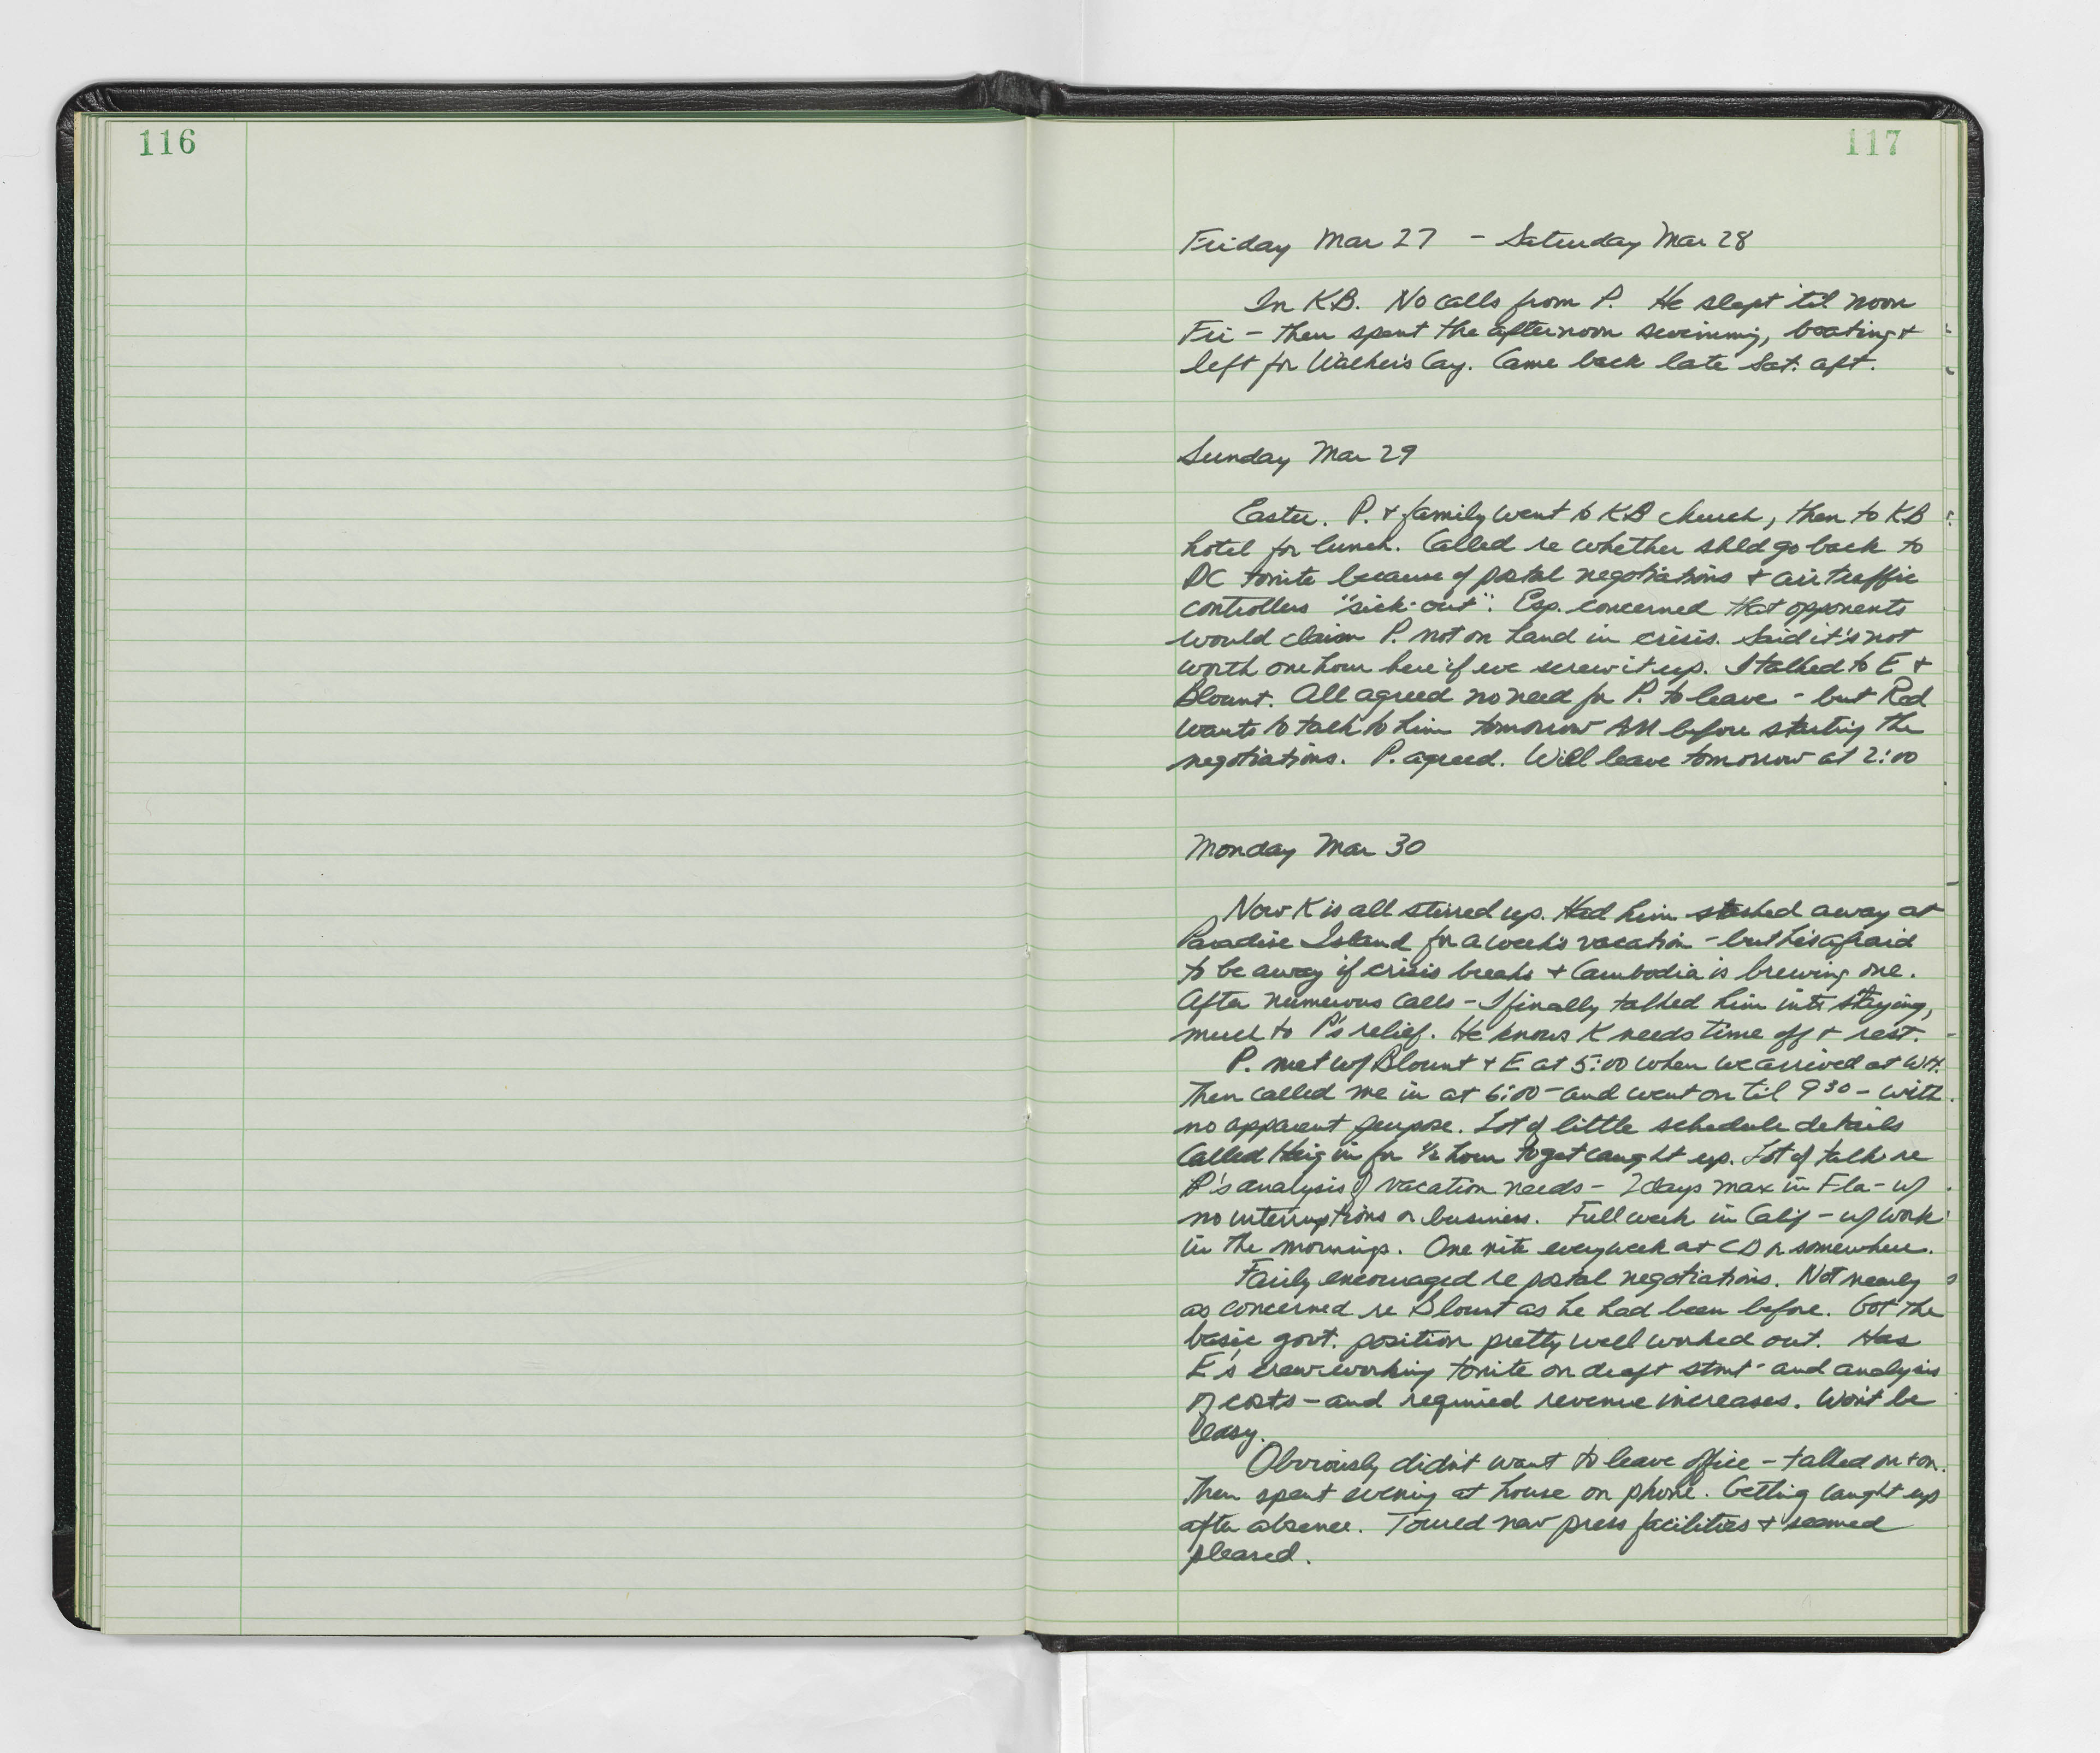 116
117
Friday Mar 27 - Saturday Mar 28
In KB. No calls from P. He slept 'til noon
Fri - then spent the afternoon swimming, boating &
left for Walker's Cay. Came back late Sat. aft.
Sunday Mar 29
Easter. P. & family went to KB church, then to KB
hotel for lunch. Called re whether shld go back to
DC tonite because of postal negotiations & air traffic
controllers "sick-out". Esp. concerned that opponents
would claim P. not on hand in crisis. Said it's not
worth one hour here if we screw it up. I talked to E &
Blount. All agreed no need for P. to leave - but Red
wants to talk to him tomorrow AM before starting the
negotiations. P. agreed. Will leave tomorrow at 2:00
Monday Mar 30
Now K is all stirred up. Had him stashed away at
Paradise Island for a week's vacation - but he's afraid
to be away if crisis breaks & Cambodia is brewing one.
After numerous calls - I finally talked him into staying,
much to P's relief. He knows K needs time off & rest.
P. met w/ Blount & E at 5:00 when we arrived at W.H.
Then called me in at 6:00 - and went on til 9:30 - with
no apparent purpose. Lot of little schedule details
Called Haig in for ½ hour to get caught up. Lot of talk re
P's analysis of vacation needs - 2 days max in Fla - w/
no interruptions or business. Full week in Calif - w/ work
in the mornings. One nite every week at CD or somewhere.
Fairly encouraged re postal negotiations. Not nearly
as concerned re Blount as he had been before. Got the
basic govt. position pretty well worked out. Has
E's crew working tonite on draft stmt - and analysis
of costs - and required revenue increases. Won't be
easy.
Obviously didn't want to leave office - talked on & on.
Then spent evening at house on phone. Getting caught up
after absence. Toured new press facilities & seemed
pleased.